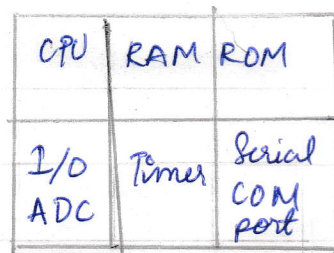 CPU RAM ROM
I/O Timer Serial
ADC COM
port